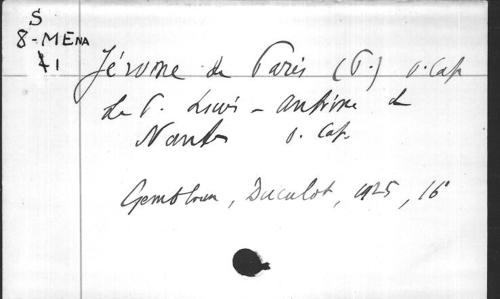 S
8-MENA
71
Jérome de Paris (P.) o. Cap
Le P. Louis-Antoine de
Nantes o. Cap.
Gembloux, Duculot, 1925, 16°